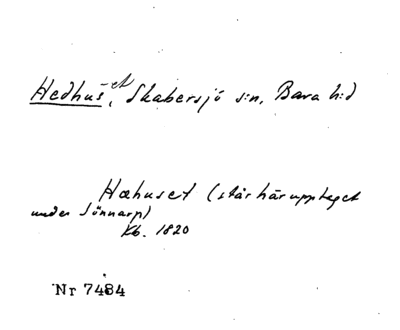 Hedhus-et, Skabersjö s:n, Bara h:d
Hæhuset (står här upptaget
under Sönnarp)
Kb. 1820
Nr 7484